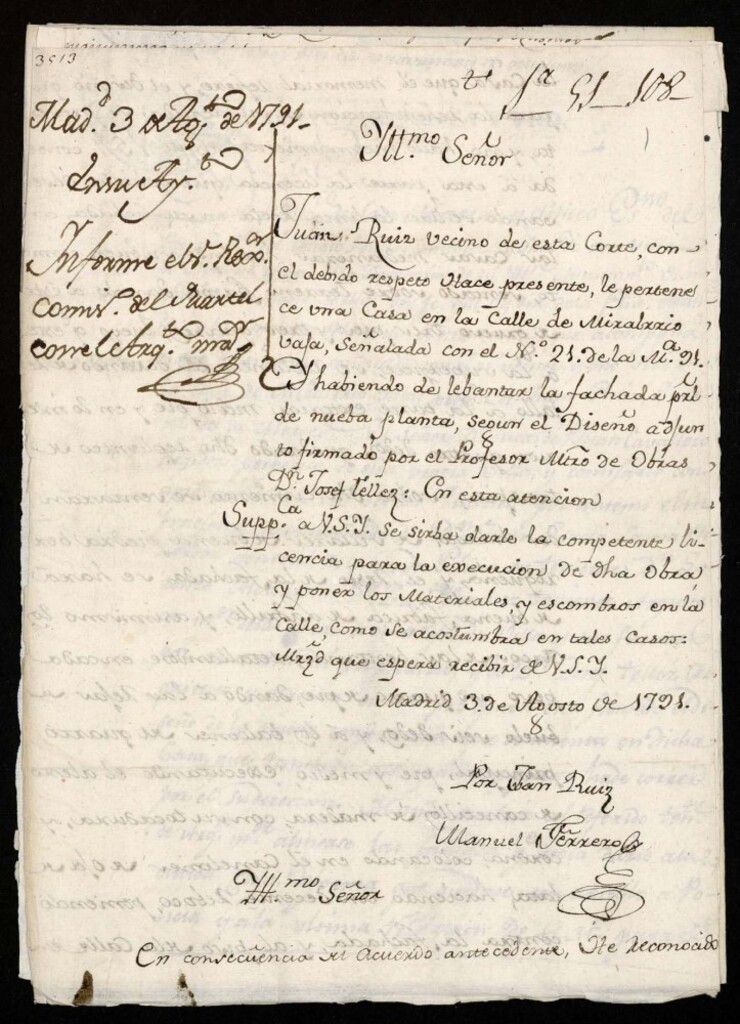 3513
tº 1ª 51_ 108_
Mad.d 3 de Agto de 1791.
En su Ay.to
Informe el Sr. Rexor
Comis.º del Quartel
con el Arq.to mayr
Ill.mo Señor
Juan Ruiz vecino de esta Corte, con
el debido respeto Hace presente, le pertene
ce una Casa en la Calle de Miralrrio
vaja, Señalada con el N.º 21. de la M.ª 91.
Y habiendo de lebantar la fachada pral
de nueba planta, segun el Diseño adjun
to firmado por el Profesor Mtro de Obras
Dn. Josef Tellez: En esta atencion
Supp.ca a V.S.Y. se sirba darle la competente li-
cencia para la execucion de dha Obra,
y poner los Materiales, y escombros en la
Calle, como se acostumbra en tales casos:
Mrzd que espera recibir de V.S.Y.
Madrid 3 de Agosto de 1791.
Por Juan Ruiz
Manuel Ferrero
Ill.mo Señor
En consecuencia del Acuerdo antecedente, He reconocido